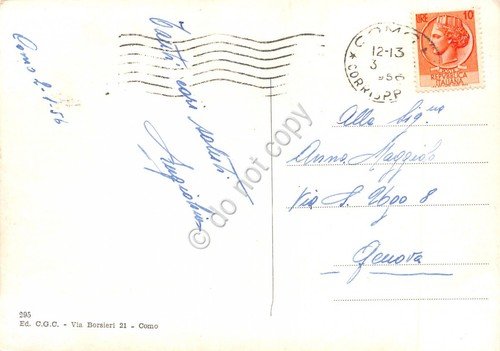 Como 2-1-56
Tanti cari saluti
Angiolina
COMO
12-13
3
956
* CORRISP.P
LIRE 10
REPUBBLICA
ITALIANA
Alla Sig.na
Anna Maggiolo
Via S. Ugo 8
Genova
© do not copy
295
Ed. C.G.C. - Via Borsieri 21 - Como